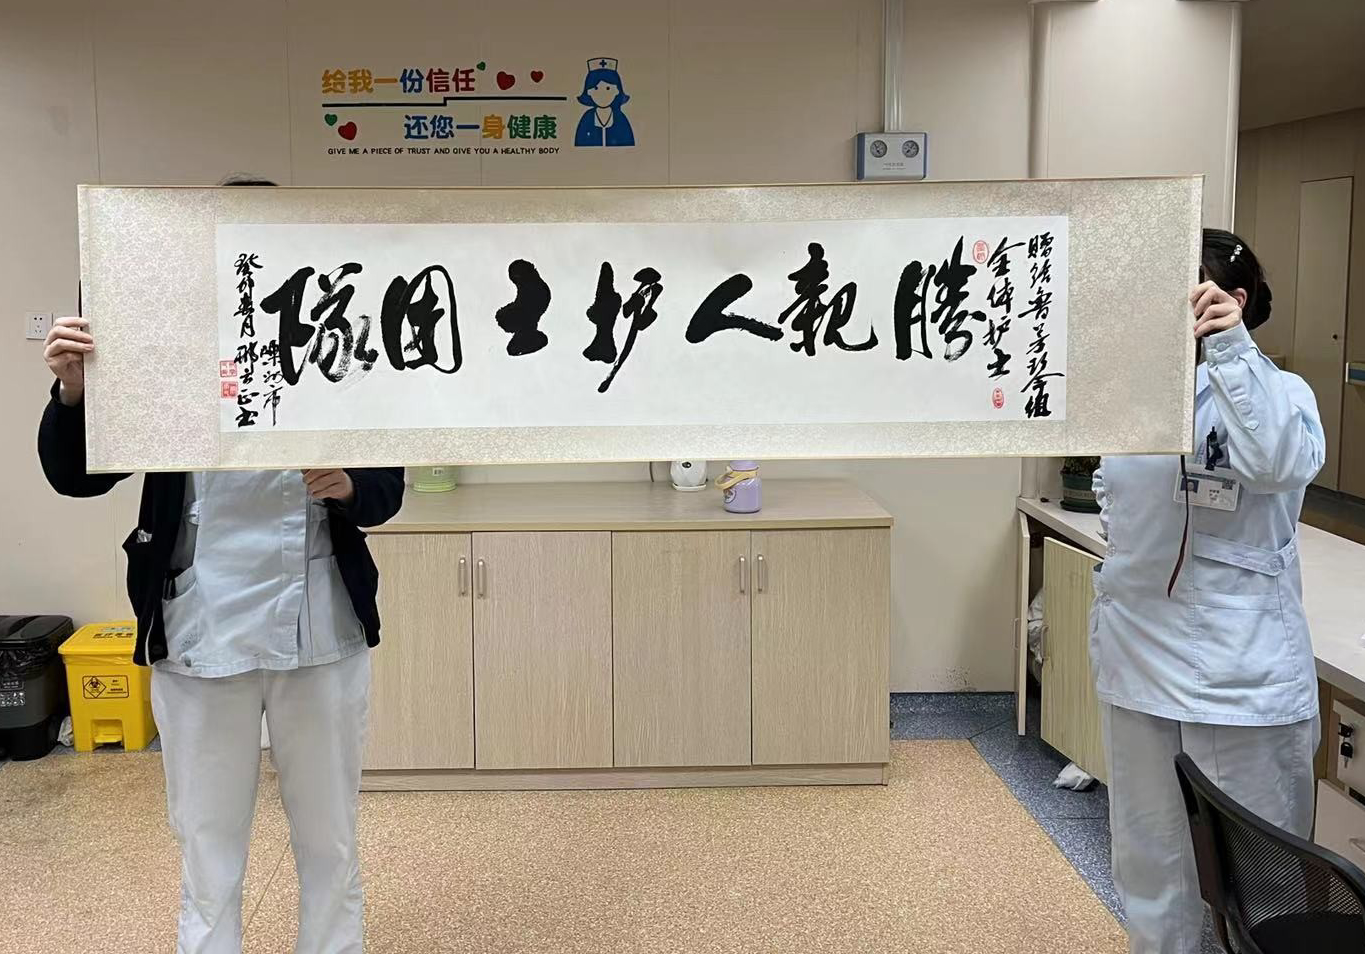 给我一份信任
还您一身健康
GIVE ME A PIECE OF TRUST AND GIVE YOU A HEALTHY BODY
贈给鲁
全体护士
勝親人护士团隊
癸卯